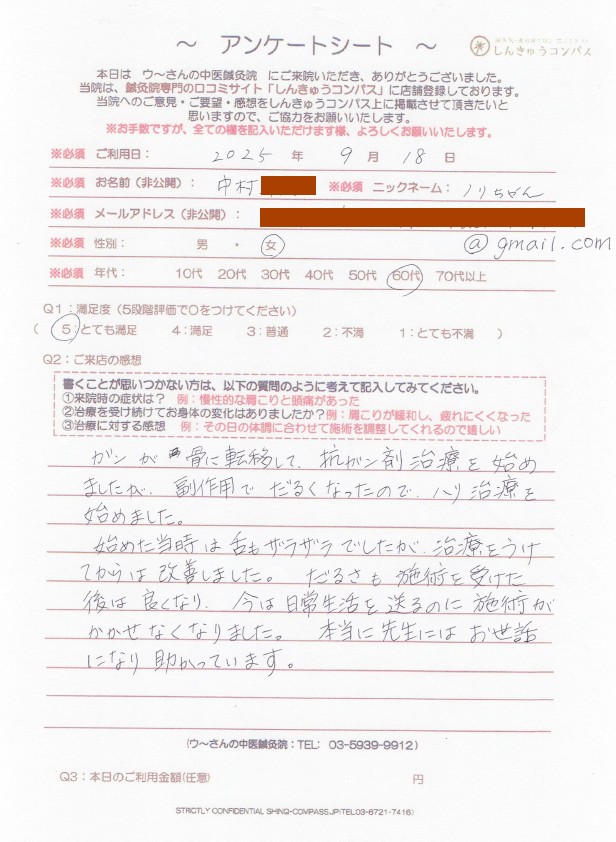 ～ アンケートシート ～
しんきゅうコンパス
本日は ウ～さんの中医鍼灸院 にご来院いただき、ありがとうございました。
当院は、鍼灸院専門の口コミサイト「しんきゅうコンパス」に店舗登録しております。
当院へのご意見・ご要望・感想をしんきゅうコンパス上に掲載させて頂きたいと
思いますので、ご協力をお願いいたします。
※お手数ですが、全ての欄を記入いただけます様、よろしくお願いいたします。
※必須 ご利用日： 2025 年 9 月 18 日
※必須 お名前（非公開）： 中村 ※必須 ニックネーム： ノリちゃん
※必須 メールアドレス（非公開）：
※必須 性別： 男 ・ 女 @gmail.com
※必須 年代： 10代 20代 30代 40代 50代 60代 70代以上
Q1：満足度（5段階評価で○をつけてください）
（ 5：とても満足 4：満足 3：普通 2：不満 1：とても不満 ）
Q2：ご来店の感想
書くことが思いつかない方は、以下の質問のように考えて記入してみてください。
①来院時の症状は？ 例：慢性的な肩こりと頭痛があった
②治療を受け続けてお身体の変化はありましたか？例：肩こりが緩和し、疲れにくくなった
③治療に対する感想 例：その日の体調に合わせて施術を調整してくれるので嬉しい
ガンが骨に転移して、抗ガン剤治療を始め
ましたが、副作用でだるくなったので、ハリ治療を
始めました。
始めた当時は舌もザラザラでしたが、治療をうけ
てからは改善しました。 だるさも施術を受けた
後は良くなり、今は日常生活を送るのに施術が
かかせなくなりました。 本当に先生にはお世話
になり助かっています。
(ウ～さんの中医鍼灸院：TEL: 03-5939-9912)
Q3：本日のご利用金額(任意) 円
STRICTLY CONFIDENTIAL SHINQ-COMPASS.JP(TEL03-6721-7416)